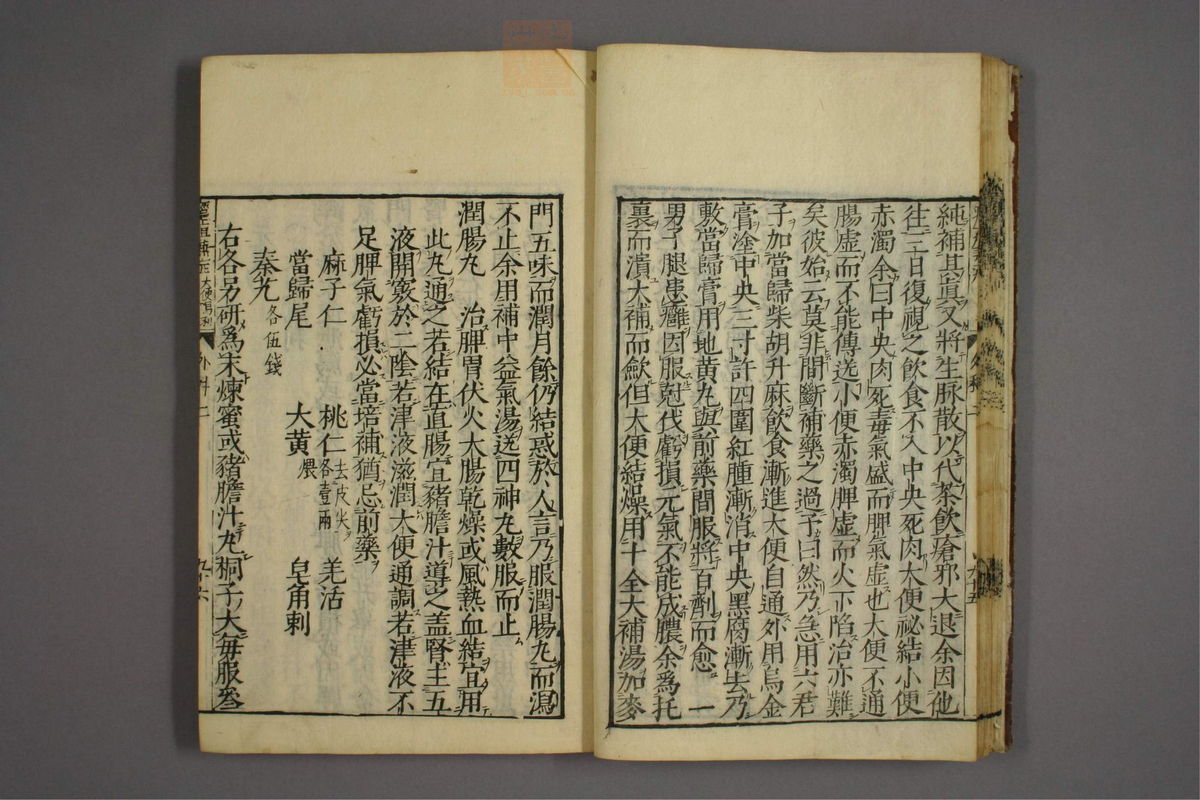 純補其眞又將生脉散以代茶飲瘡邪大退余因他
往三日復視之飲食不入中央死肉大便祕結小便
赤濁余曰中央肉死毒氣盛而脾氣虚也大便不通
腸虚而不能傳送小便赤濁脾虚而火下陷治亦難
矣彼始云莫非間斷補藥之過予曰然乃急用六君
子加當歸柴胡升麻飲食漸進大便自通外用烏金
膏塗中央三寸許四圍紅腫漸消中央黑腐漸去乃
敷當歸膏用地黄丸與前藥間服將百劑而愈　一
男子腿患癰因服尅伐虧損元氣不能成膿余爲托
裏而潰大補而歛但大便結燥用十全大補湯加麥
門五味而潤月餘仍結惑於人言乃服潤腸丸而瀉
不止余用補中益氣湯送四神丸數服而止
潤腸丸　治脾胃伏火大腸乾燥或風熱血結宜用
此丸通之若結在直腸宜豬膽汁導之盖腎主五
液開竅於二陰若津液滋潤大便通調若津液不
足脾氣虧損必當培補猶忌前藥
麻子仁　桃仁去皮尖各壹兩　羌活
當歸尾　大黄煨　皂角刺
秦艽各伍錢
右各另研爲末煉蜜或豬膽汁丸桐子大每服叄
外科二